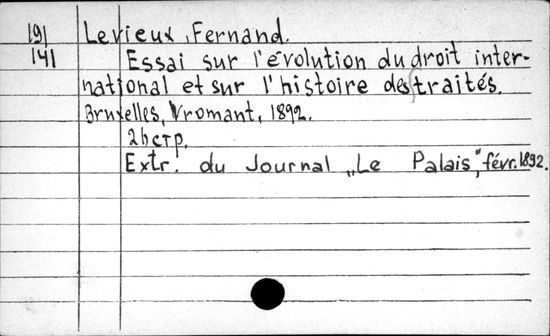 191 Levieux, Fernand.
141 Essai sur l'évolution du droit inter-
national et sur l'histoire des traités.
Bruxelles, Vromant, 1892.
26 стр.
Extr. du Journal „Le Palais", févr. 1892.